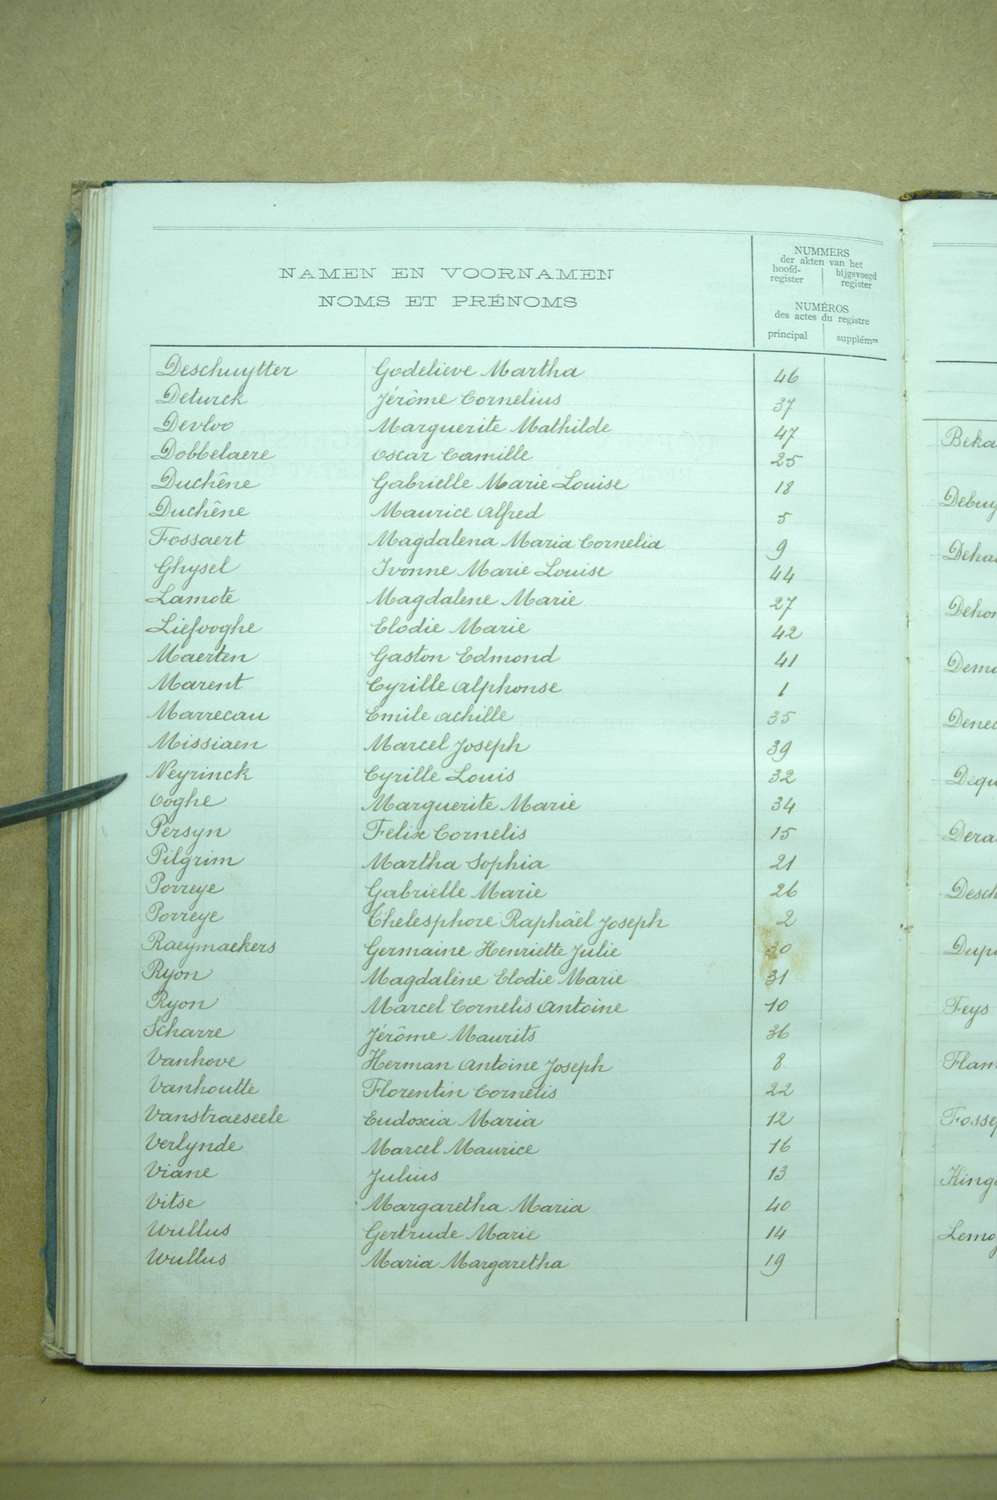 NAMEN EN VOORNAMEN
NOMS ET PRÉNOMS
NUMMERS
der akten van het
hoofd-register
bijgevoegd register
NUMÉROS
des actes du registre
principal
supplémre
Deschuytter Godelieve Martha 46
Deturck Jérôme Cornelius 37
Devloo Marguerite Mathilde 47
Dobbelaere Oscar Camille 25
Duchêne Gabrielle Marie Louise 18
Duchêne Maurice Alfred 5
Fossaert Magdalena Maria Cornelia 9
Ghysel Ivonne Marie Louise 44
Lamote Magdalene Marie 27
Liefooghe Elodie Marie 42
Maerten Gaston Edmond 41
Marent Cyrille Alphonse 1
Marrecau Emile Achille 35
Missiaen Marcel Joseph 39
Neyrinck Cyrille Louis 32
Ooghe Marguerite Marie 34
Persyn Felix Cornelis 15
Pilgrim Martha Sophia 21
Porreye Gabrielle Marie 26
Porreye Thelesphore Raphaël Joseph 2
Raeymaekers Germaine Henriette Julie
Ryon Magdalène Elodie Marie 31
Ryon Marcel Cornelis Antoine 10
Scharre Jérôme Maurits 36
Vanhove Herman Antoine Joseph 8
Vanhoutte Florentin Cornelis 22
Vanstraeseele Eudoxia Maria 12
Verlynde Marcel Maurice 16
Viane Julius 13
Vitse Margaretha Maria 40
Wullus Gertrude Marie 14
Wullus Maria Margaretha 19
Feys